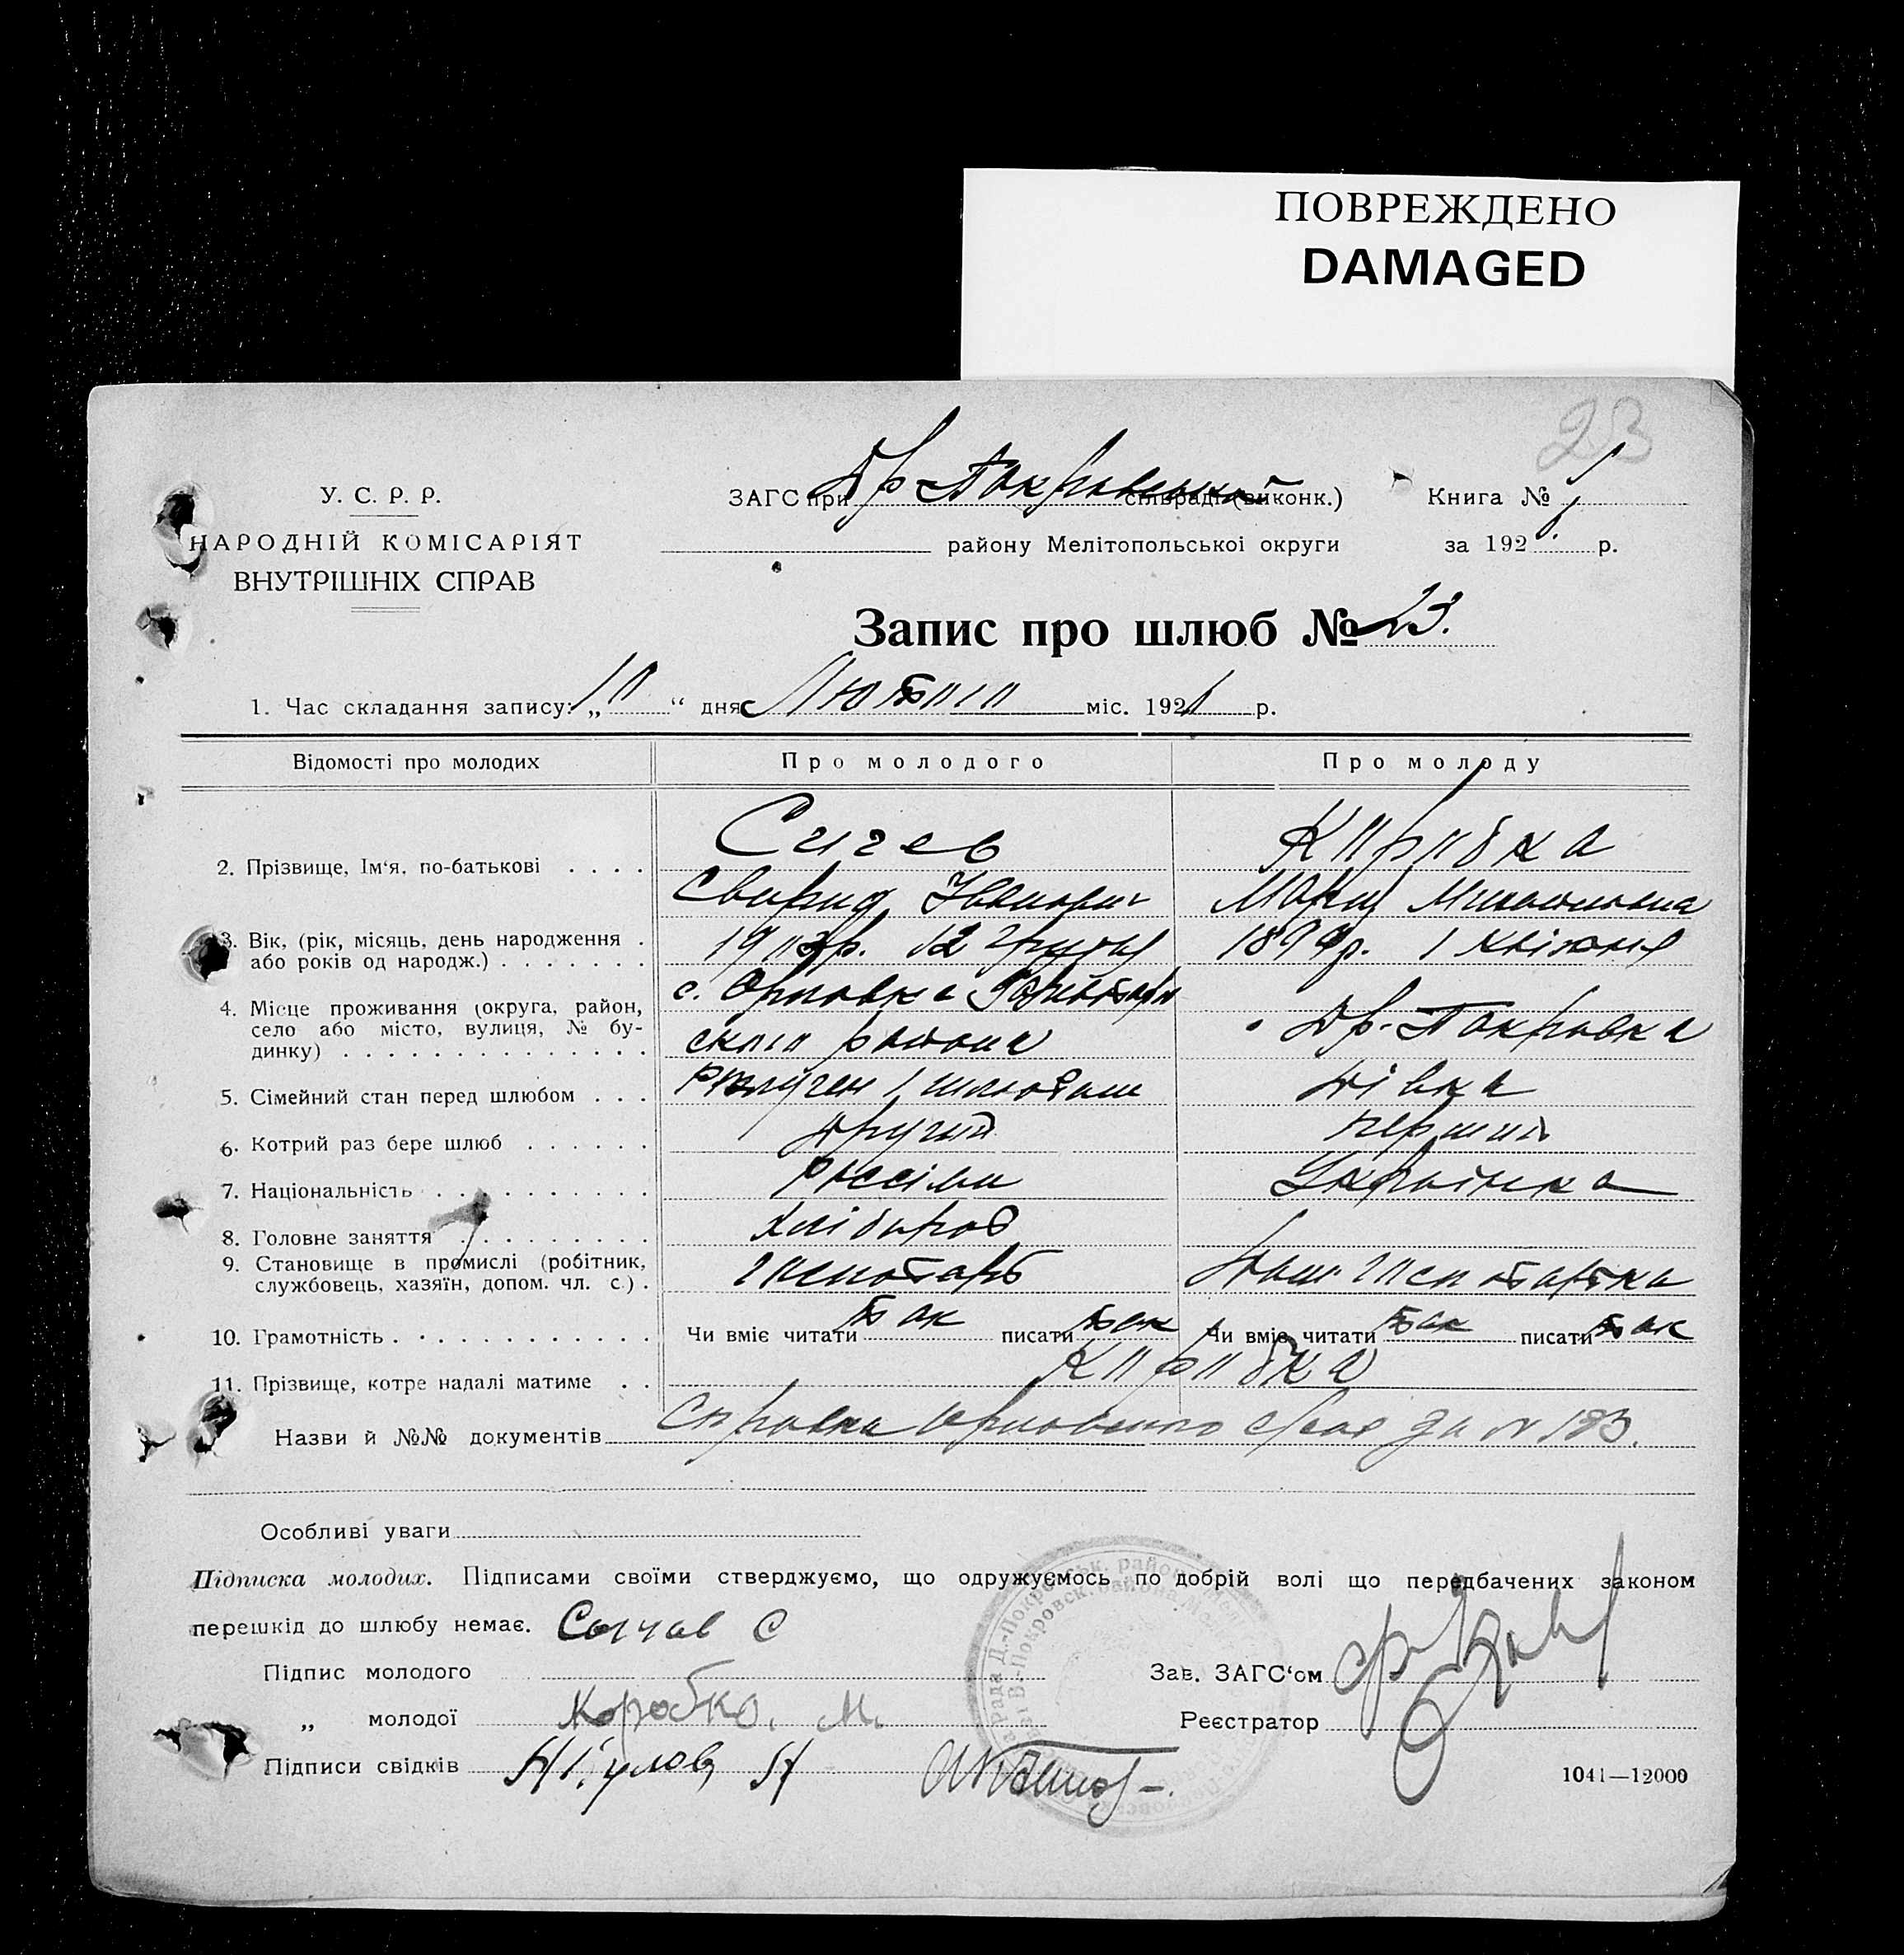 ПОВРЕЖДЕНО
DAMAGED
23
У. С. Р. Р.
НАРОДНІЙ КОМІСАРІЯТ
ВНУТРІШНІХ СПРАВ
ЗАГС при Др-Покровской сільраді (виконк.) Книга №
району Мелітопольської округи за 192 р.
Запис про шлюб № 23.
1. Час складання запису: „ 10 “ дня Лютого міс. 192 р.
Відомості про молодих Про молодого Про молоду
2. Прізвище, Ім‘я, по-батькові . . . . Сичев Коробка
Свирид Іванович Мария
3. Вік, (рік, місяць, день народження . 12 грудня 1 квітня
або років од народж.) . . . . . . .
4. Місце проживання (округа, район, с. Орловка
село або місто, вулиця, № бу- Др.-Покровка
динку) . . . . . . . . . . . . . . ского района
5. Сімейний стан перед шлюбом . . . Розлучен дівка
6. Котрий раз бере шлюб . . . . . . Другий первий
7. Національність . . . . . . . . . . Українка
8. Головне заняття . . . . . . . . . хлібороб
9. Становище в промислі (робітник,
службовець, хазяїн, допом. чл. с.) .
10. Грамотність . . . . . . . . . . . . Чи вміє читати так писати так Чи вміє читати так писати так
11. Прізвище, котре надалі матиме . . Коробка
Назви й №№ документів Справка за N 183.
Особливі уваги
Підписка молодих. Підписами своїми стверджуємо, що одружуємось по добрій волі що передбачених законом
перешкід до шлюбу немає. Сычав С
Підпис молодого Зав. ЗАГС‘ом
„ молодої Коробко. М. Реєстратор
Підписи свідків
1041—12000